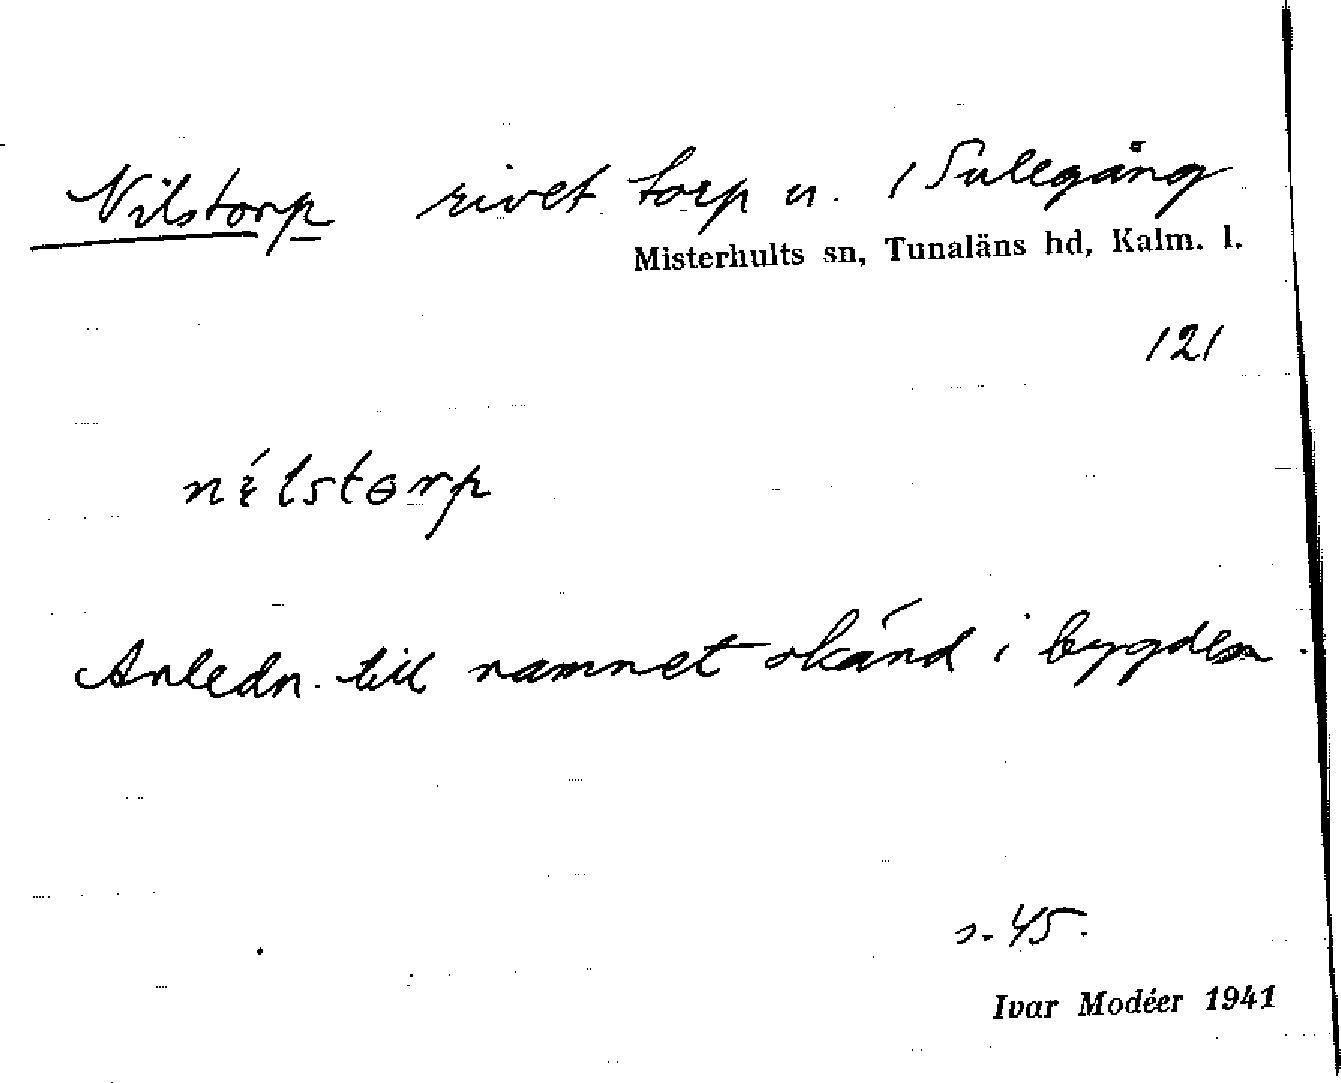 Nilstorp rivet torp u. 1 Sulegång
Misterhults sn, Tunaläns hd, Kalm. l.
121
nɛ́lstɵrp
Anledn. till namnet okänd i bygden.
s. 45.
Ivar Modéer 1941